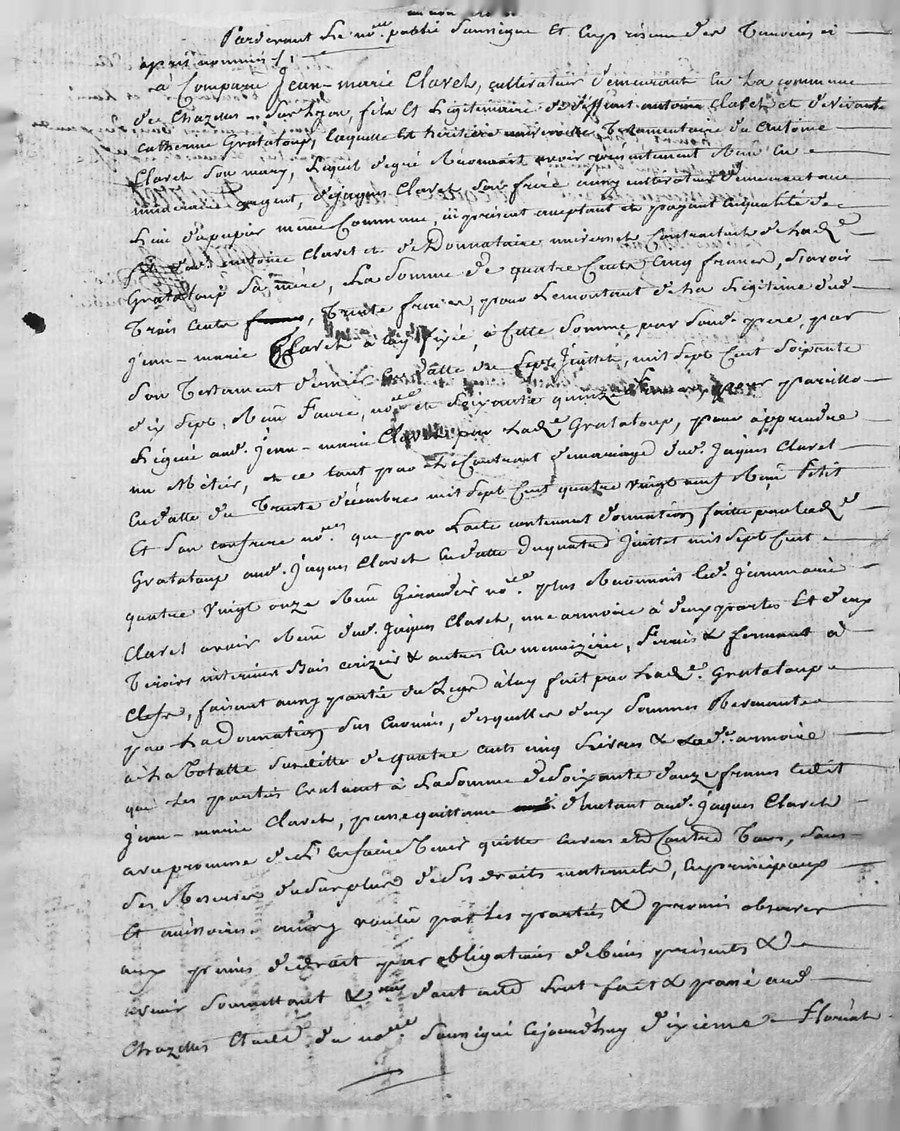 Pardevant Le no.re public Soussigné Et en presence des Temoins ci
après nommés
a Comparu Jean-marie Claret, cultivateur demeurant en La commune
de Chazelles sur Lyon, fils Et Légitimaire de deffunt antoine Claret et de vivante
catherine Grataloup, laquelle Est héritiere universelle Testamentaire du d. Antoine
Claret Son mary, Lequel de gré Reconnoit avoir présentement Reçu en
numeraire argent, de jaques Claret Son frère aussy cultivateur demeurant au
Lieu de même Commune, ici présent acceptant et payant en qualité de
antoine Claret et de Donnataire universel Contractuel de Lad.e
Grataloup Sa mère, La Somme de quatre Cents Cinq francs, Savoir
Trois Cents, Trente francs, pour Le montant de La Légitime dud.
Jean-marie Claret à luy fixée, à Cette Somme, par Sond. pere, par
Son Testament dernier En datte du Sept Juillet, mil Sept Cent Soixante
dix Sept, Reçu Favre, no.re et Soixante quinze pour pareille
Leguée aud. Jean-marie Claret par Lad.e Grataloup, pour apprendre
un Métier, et ce tant par Le Contrat de mariage dud. Jaques Claret
En datte du Trente décembre mil Sept Cent quatre vingt neuf Reçu Petit
Et Son confrere no.res que par Lacte contenant donnation faitte par lad.e
Grataloup aud. Jaques Claret En datte du quatre Juillet mil Sept Cent
quatre vingt onze Reçu no.re plus Reconnoit led. Jeanmarie
Claret avoir Reçu dud. Jaques Claret, une armoire à deux portes Et deux
Tiroirs interieurs Bois cerizier & autres En menuizerie, Ferrée & fermant à
Clefs, faisant aussy partie du Legs à luy fait par Lad.e Grataloup
par La Donnation Sus Enoncée, desquelles deux Sommes Revenantes
à La totalle Susditte de quatre cents cinq Livres & Lad.e armoire
que Les parties Evaluent à La Somme de Soixante douze francs Ledit
Jean-marie Claret, passe quittance d'autant aud. Jaques Claret
avec promesse de L'En faire Tenir quitte Envers et Contre Tous, Sous
Ses Reserves du Surplus de Ses droits maternels, En principaux
Et accessoires ainsy voulu par Les parties & promis observer
aux peines de droit par obligations de biens présents & a
venir Soumettant & dont acte Leut fait & passé aud.
Chazelles Etude du no.re Soussigné Cejourdhuy dixieme Floréal